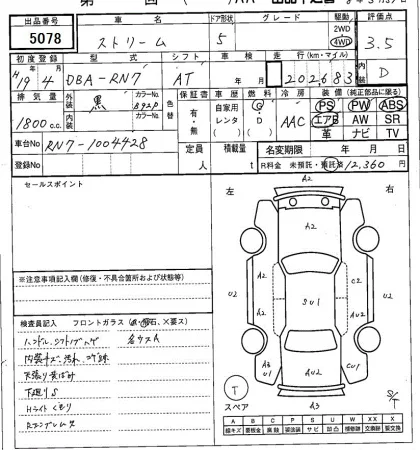 出品番号 車名 ドア形状 グレード 駆動 評価点
5078 ストリーム 5 2WD 4WD 3.5
初度登録 型式 シフト 車検 走行(km・マイル) 内装
H19年4月 DBA-RN7 AT 年 月 202,683 D
排気量 外装 黒 カラーNo. B92P 色替 保証書 車歴 燃料 冷房 装備(純正部品に限る)
1800c.c. 内装 カラーNo. 有・無 自家用 レンタ G D AAC PS PW ABS
エアB AW SR
革 ナビ TV
車台No RN7-1004428 定員 人 積載量 t 名変期限 年 月 日
登録No R料金 未預託・預託済 12,360円
セールスポイント
左 右
A2
A2
U2 A2 C2 U2
A2 SU1 A2
A3 U1 AU2 CU1
T A3
スペア
※注意事項記入欄(修復・不具合箇所および状態等)
検査員記入 フロントガラス
ハンドル、シフトノブスレ 各キズA
内装キズ、汚れ、コゲ跡
天張り黄ばみ
下廻りS
Hライトくもり
A B C P S U W X XX
線キズ 腐蝕 塗装 サビ 凹ミ 補修跡 交換跡 要交換